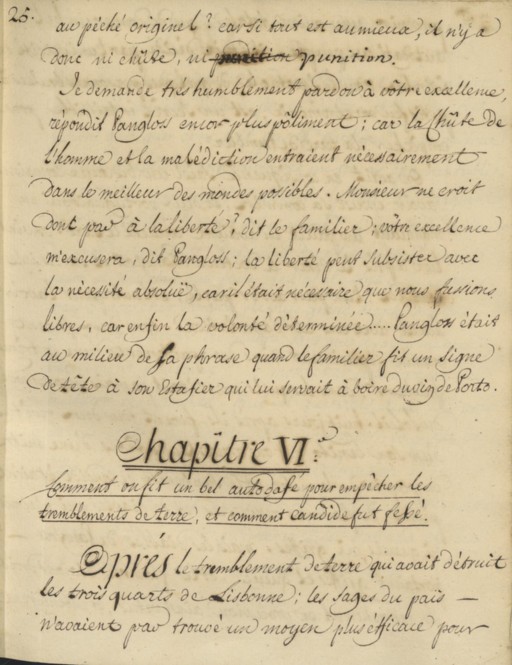 25.
au péché originel? car si tout est au mieux, il n'y a
donc ni chûte, ni punition punition.
Je demande trés humblement pardon à vôtre excellence,
répondit Pangloss encor plus poliment; car la Chûte de
l'homme et la malédiction entraient nécessairement
dans le meilleur des mondes possibles. Monsieur ne croit
dont pas à la liberté? dit le familier; vôtre excellence
m'excusera, dit Pangloss; la liberté peut subsister avec
la nécessité absoluë, car il était nécessaire que nous fussions
libres, car enfin la volonté déterminée..... Pangloss était
au milieu de sa phrase quand le familier fit un signe
de tête à son Estafier qui lui servait à boire du vin de Porto.
Chapître VI.e
Comment on fit un bel autodafé pour empêcher les
tremblements de terre, et comment candide fut fessé.
Aprés le tremblement de terre qui avait détruit
les trois quarts de Lisbonne; les sages du païs —
n'avaient pas trouvé un moyen plus éfficace pour